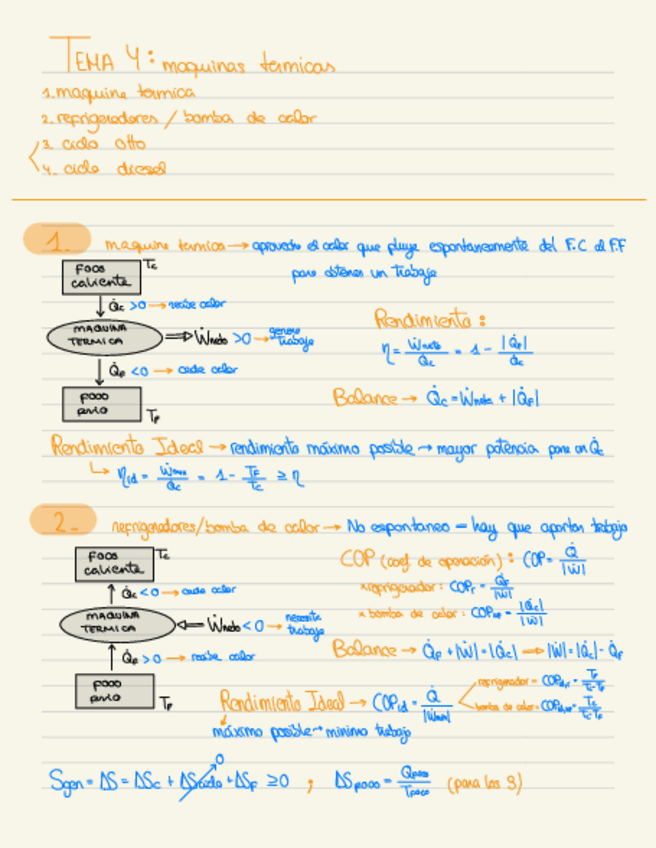 TEMA 4: maquinas termicas
1. maquina termica
2. refrigeradores / bomba de calor
3. ciclo otto
4. ciclo diesel
1. maquina termica → aprovecha el calor que fluye espontaneamente del F.C al F.F
para obtener un trabajo
FOCO CALIENTE Tc
Q̇c >0 → recibe calor
MAQUINA TERMICA ⇒ Ẇneto >0 → genera trabajo
Q̇F <0 → cede calor
FOCO FRIO TF
Rendimiento:
η = Ẇneto/Q̇c = 1 - |Q̇F|/Q̇c
Balance → Q̇c = Ẇneto + |Q̇F|
Rendimiento Ideal → rendimiento máximo posible → mayor potencia para un Q̇c
↳ ηid = Ẇmax/Q̇c = 1 - TF/Tc ≥ η
2. refrigeradores/bomba de calor → No espontaneo = hay que aportar trabajo
FOCO CALIENTE Tc
Q̇c <0 → cede calor
MAQUINA TERMICA ⇐ Ẇneto <0 → necesita trabajo
Q̇F >0 → recibe calor
FOCO FRIO TF
COP (coef de operación): COP = Q̇/|Ẇ|
× refrigerador: COPr = Q̇F/|Ẇ|
× bomba de calor: = |Q̇c|/|Ẇ|
Balance → Q̇F + |Ẇ| = |Q̇c| ⇒ |Ẇ| = |Q̇c| - Q̇F
Rendimiento Ideal → COPid = Q̇/|Ẇmin|
refrigerador = COPid,r = TF/Tc-TF
bomba de calor = = Tc/Tc-TF
máximo posible → minimo trabajo
Sgen = ΔS = ΔSc + ΔSciclo 0 + ΔSF ≥ 0 ; ΔSfoco = Qfoco/Tfoco (para los 3)